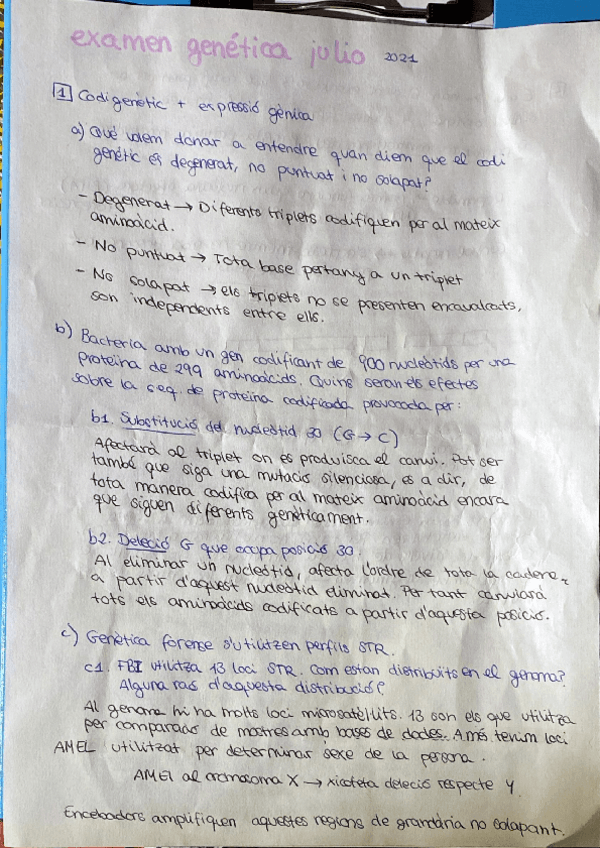 examen genética julio 2021
1 Codi genètic + expressió gènica
a) Què volem donar a entendre quan diem que el codi
genètic es degenerat, no puntuat i no solapat?
- Degenerat → Diferents triplets codifiquen per al mateix
aminoàcid.
- No puntuat → Tota base pertany a un triplet
- No solapat → els triplets no se presenten encavalcats,
son independents entre ells.
b) Bacteria amb un gen codificant de 900 nucleòtids per una
proteïna de 299 aminoàcids. Quins seran els efectes
sobre la seq. de proteïna codificada provocada per:
b1. Substitució del nucleòtid 30 (G → C)
Afectarà al triplet on es produïsca el canvi. Pot ser
també que siga una mutació silenciosa, es a dir, de
tota manera codifica per al mateix aminoàcid encara
que siguen diferents genèticament.
b2. Deleció G que ocupa posició 30.
Al eliminar un nucleòtid, afecta l'ordre de tota la cadena
a partir d'aquest nucleòtid eliminat. Per tant canviarà
tots els aminoàcids codificats a partir d'aquesta posició.
c) Genètica forense s'utilitzen perfils STR.
c1. FBI utilitza 13 loci STR. Com estan distribuits en el genoma?
Alguna raó d'aquesta distribució?
Al genoma hi ha molts loci microsatèl·lits. 13 son els que utilitza
per comparació de mostres amb bases de dades. A més tenim loci
AMEL utilitzat per determinar sexe de la persona.
AMEL al cromosoma X → xicoteta deleció respecte Y.
Encebadors amplifiquen aquestes regions de grandària no solapant.